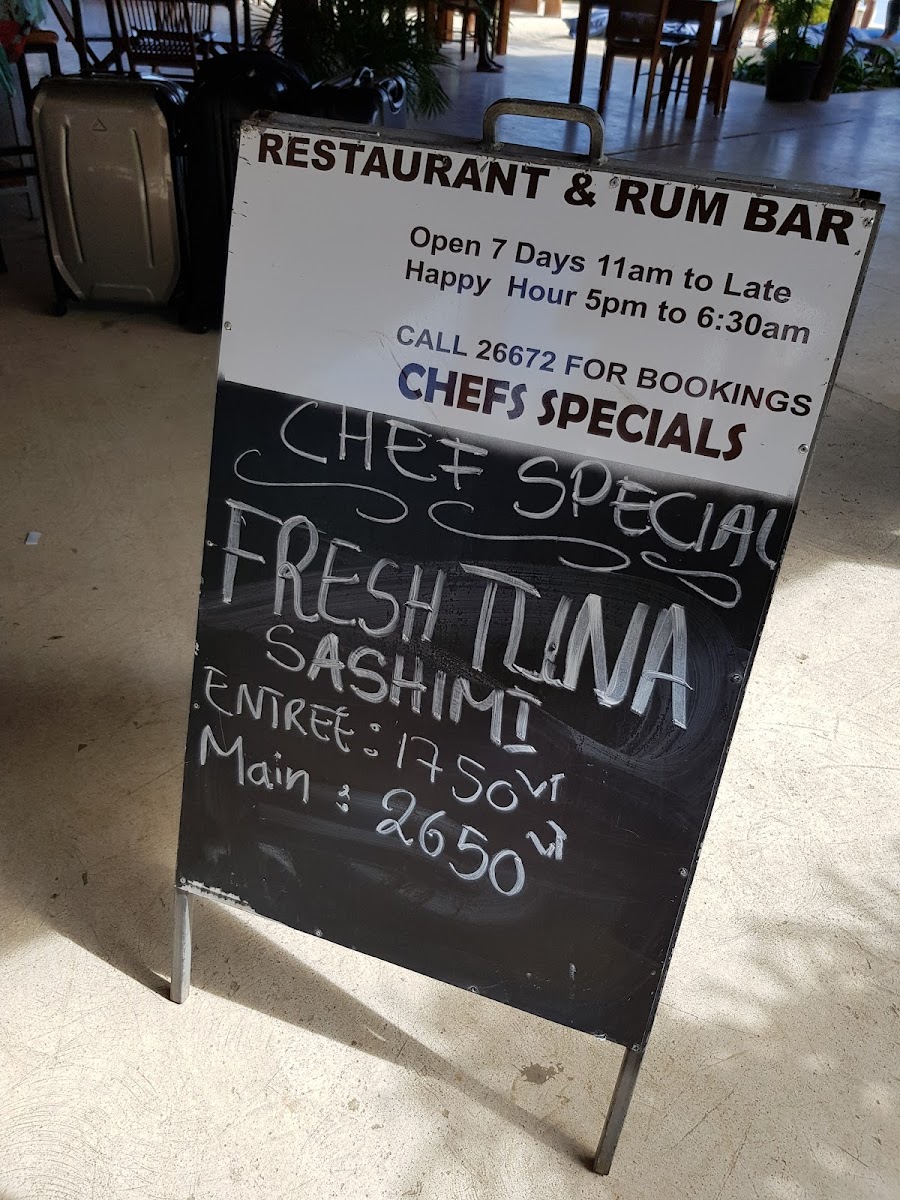 RESTAURANT & RUM BAR
Open 7 Days 11am to Late
Happy Hour 5pm to 6:30am
CALL 26672 FOR BOOKINGS
CHEFS SPECIALS
CHEF SPECIAL
FRESH TUNA
SASHIMI
ENTREE: 1750 VT
Main : 2650 VT